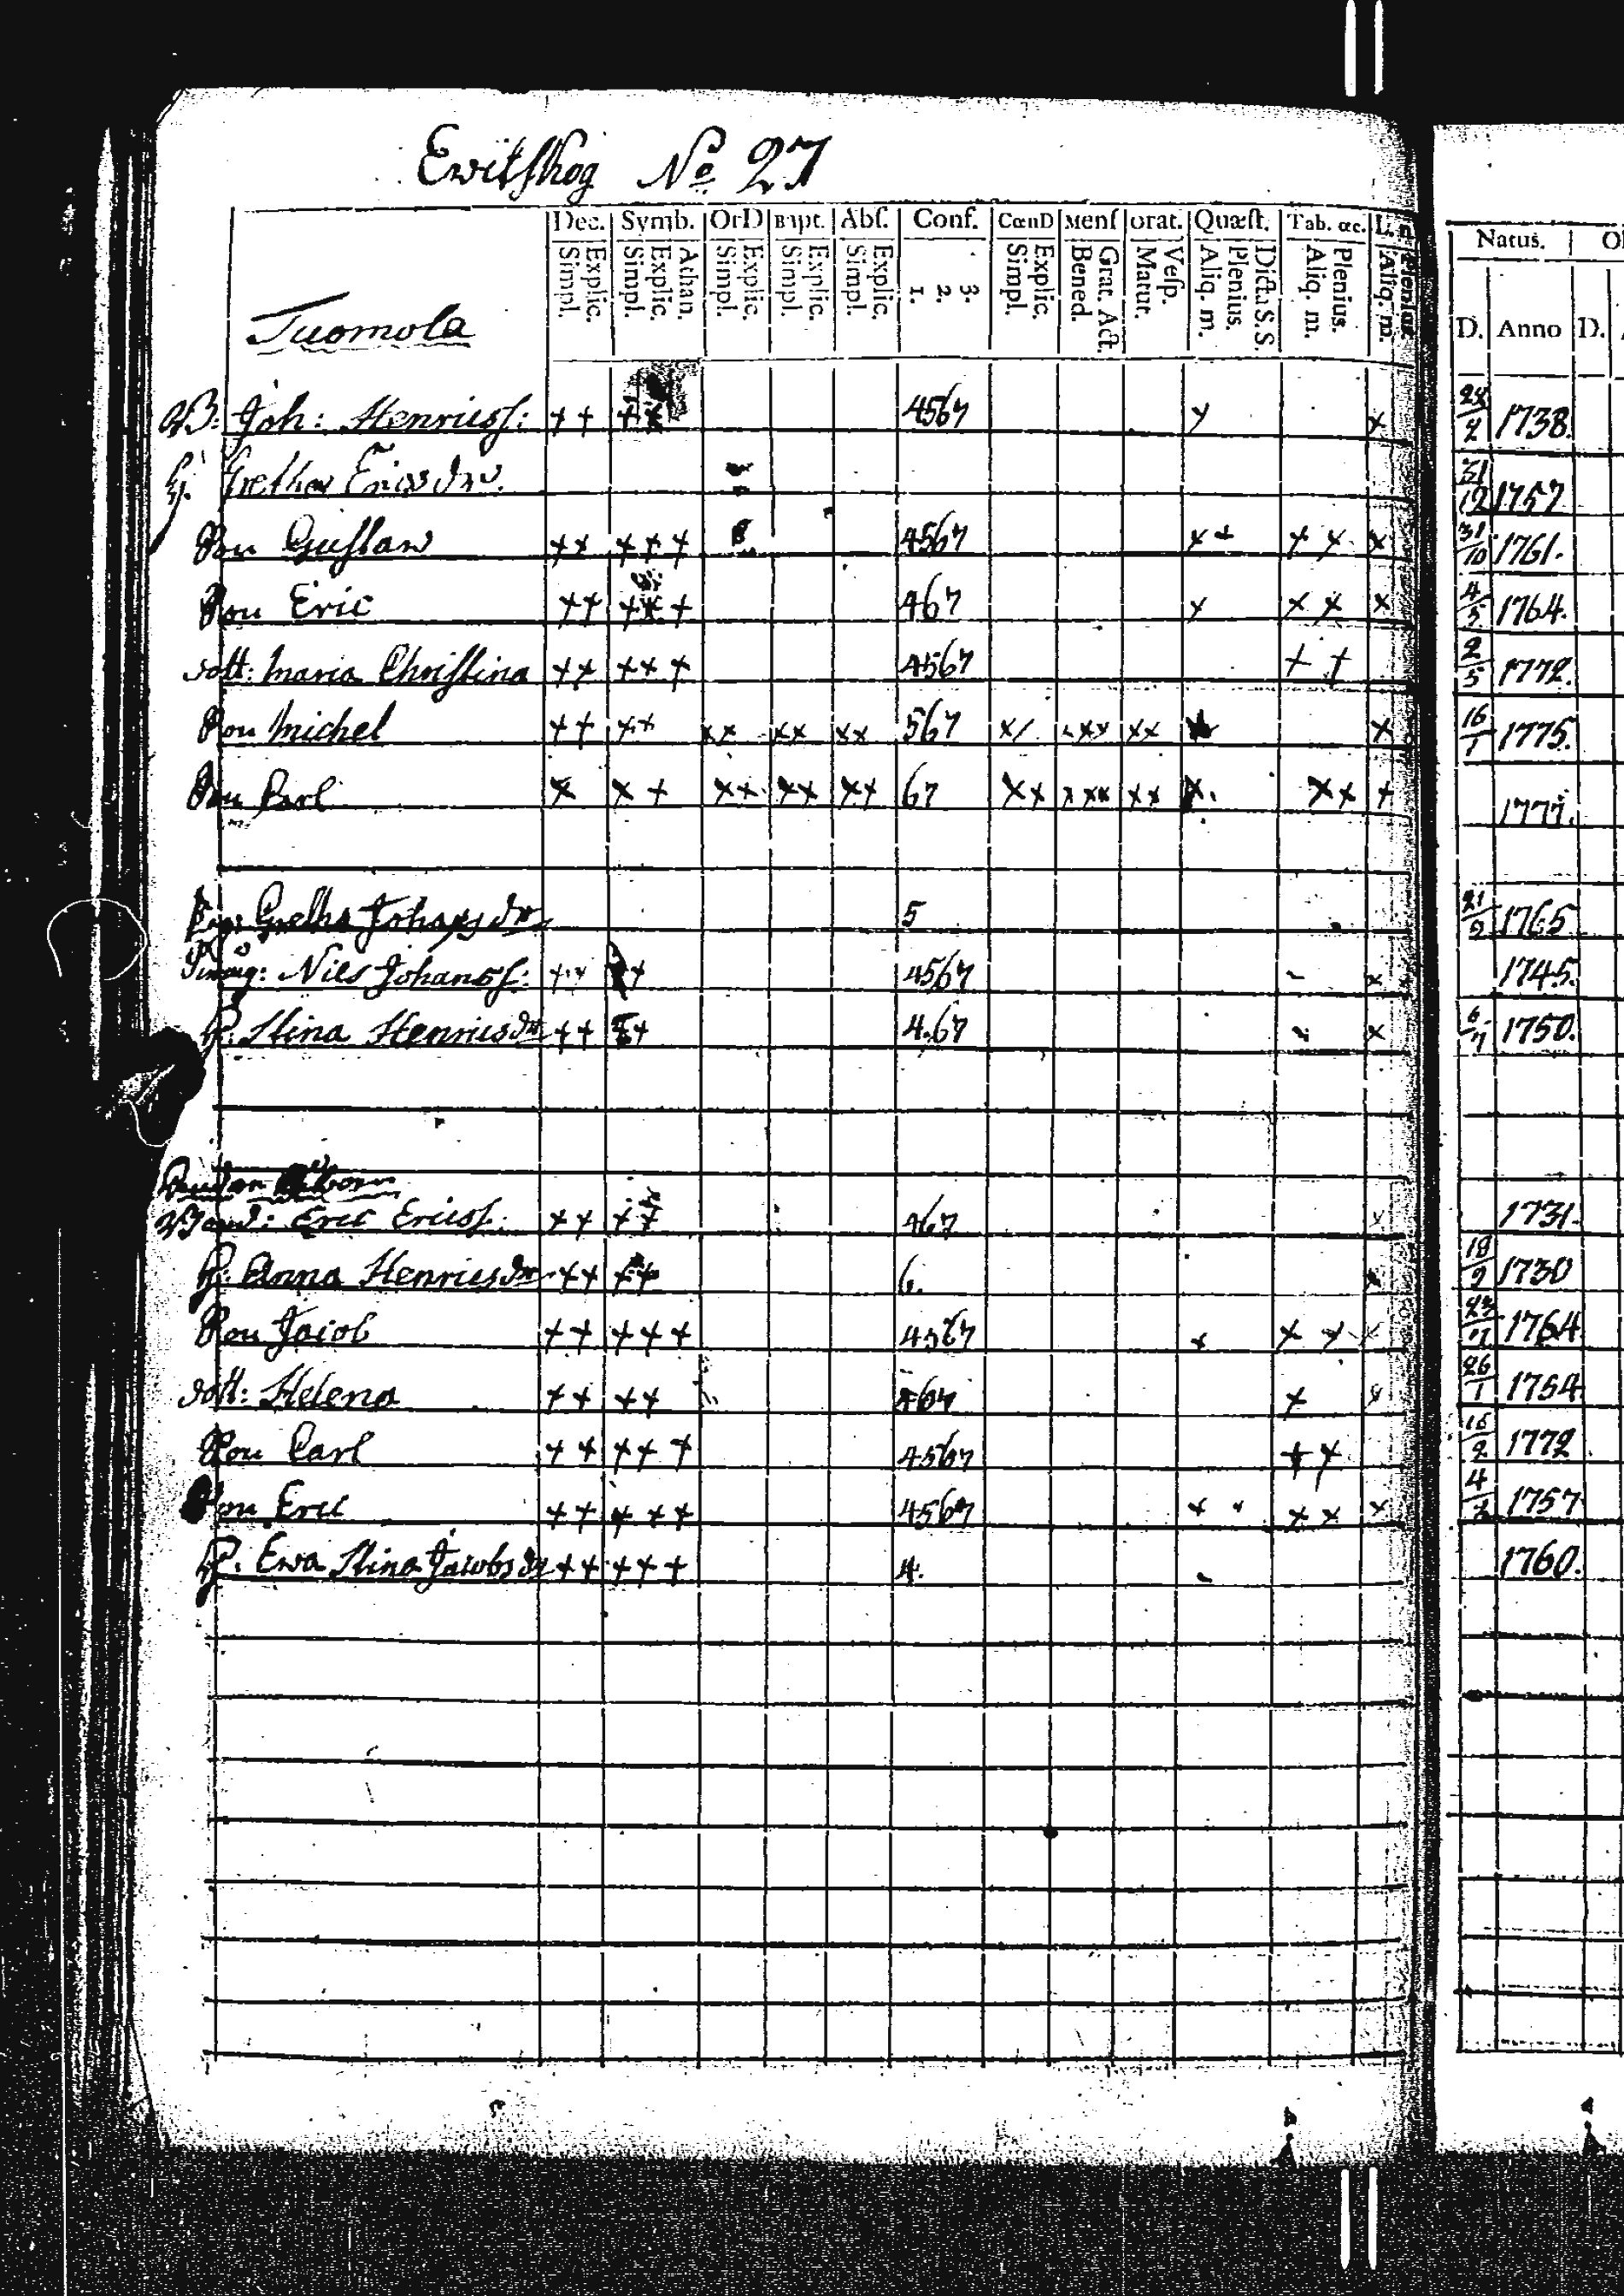 Ewitskog No 27
Dec. Symb. OrD Bapt. Abs. Conf. CœnD Mens Orat. Quæst. Tab. œc. L. n. Natus.
Simpl. Explic. Simpl. Explic. Athan. Simpl. Explic. Simpl. Explic. Simpl. Explic. 1. 2. 3. Simpl. Explic. Bened. Grat. Act. Matut. Vesp. Aliq. m. Plenius. Dicta S. S. Aliq. m. Plenius. Aliq. m. Plenius. D. Anno D.
Tuomola
B: Joh: Henricss: ++ ++ 4567 x x 1738.
H. Gretha Ericsdr. 31/12 1757
Son Gustav ++ +++ 4567 x+ ++ x 31/10 1761.
Son Eric ++ +++ 467 x xx x 4/5 1764.
dott: Maria Christina ++ +++ 4567 ++ 2/5 1772.
Son Michel ++ ++ xx xx xx 567 x/ xxx xx x 16/1 1775.
Son Carl x x+ xx xx xx 67 xx xxx xx x. xx + 1777.
Gretha Johansdr 5 21/9 1765
Nils Johanss: ++ ++ 4567 - x 1745.
H. Stina Henricsdr ++ ++ 4.67 - x 6/7 1750.
Eric Ericss: ++ ++ 467 x 1731.
H. Anna Henricsdr ++ ++ 6. x 1730
Son Jacob ++ +++ 4567 x x x 1764
dott: Helena ++ ++ 467 x x 26/1 1754
Son Carl ++ +++ 4567 ++ 1772
Son Eric ++ +++ 4567 x x xx x 1757
H. Ewa Stina Jacobsdr ++ +++ 4. - 1760.